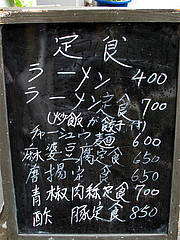 定食
ラーメン 400
ラーメン定食 700
(炒飯か餃子付)
チャーシュウ麺 600
麻婆豆腐定食 650
唐揚定食 650
青椒肉絲定食 700
酢豚定食 850